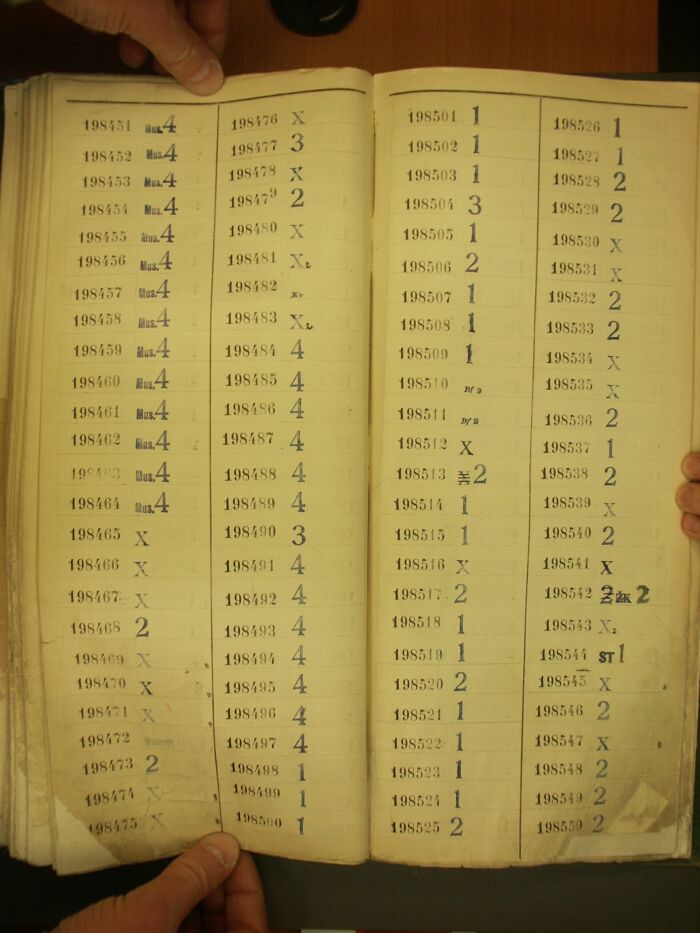 198451 Mus.4
198452 Mus.4
198453 Mus.4
198454 Mus.4
198455 Mus.4
198456 Mus.4
198457 Mus.4
198458 Mus.4
198459 Mus.4
198460 Mus.4
198461 Mus.4
198462 Mus.4
198463 Mus.4
198464 Mus.4
198465 X
198466 X
198467 X
198468 2
198469 X
198470 X
198471 X
198472
198473 2
198474 X
198475 X
198476 X
198477 3
198478 X
198479 2
198480 X
198481 X2
198482
198483 X2
198484 4
198485 4
198486 4
198487 4
198488 4
198489 4
198490 3
198491 4
198492 4
198493 4
198494 4
198495 4
198496 4
198497 4
198498 1
198499 1
198500 1
198501 1
198502 1
198503 1
198504 3
198505 1
198506 2
198507 1
198508 1
198509 1
198510 Bf 2
198511 Bf 2
198512 X
198513 2
198514 1
198515 1
198516 X
198517 2
198518 1
198519 1
198520 2
198521 1
198522 1
198523 1
198524 1
198525 2
198526 1
198527 1
198528 2
198529 2
198530 X
198531 X
198532 2
198533 2
198534 X
198535 X
198536 2
198537 1
198538 2
198539 X
198540 2
198541 X
198542 2
198543 X2
198544 ST 1
198545 X
198546 2
198547 X
198548 2
198549 2
198550 2